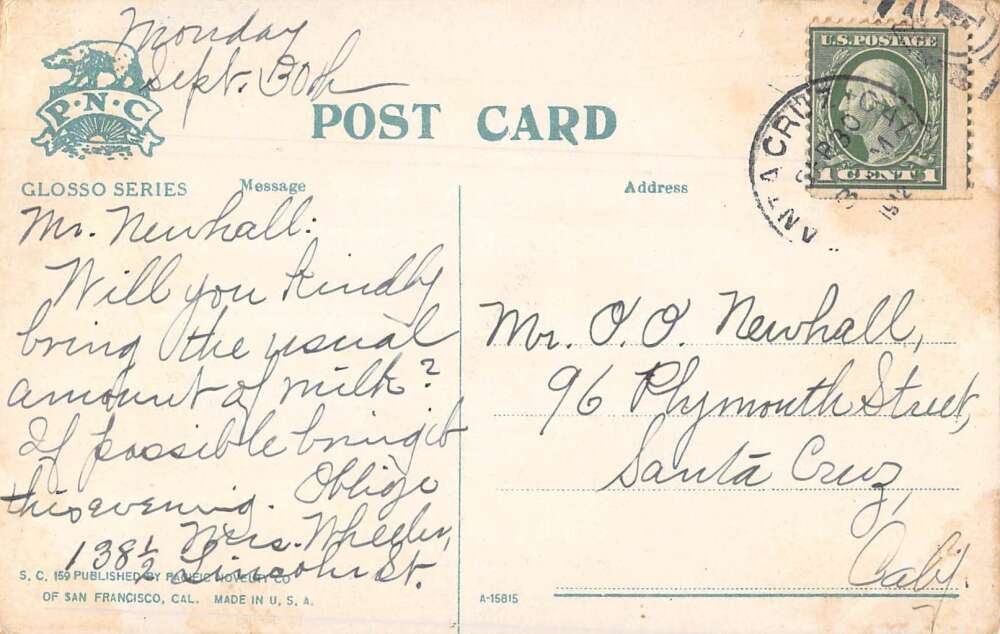 Monday
Sept. 30th
P·N·C
POST CARD
U.S. POSTAGE
1 CENT 1
ANTA CRUZ CAL
SEP 30
M
1912
GLOSSO SERIES
Message
Address
Mr. Newhall:
Will you kindly
bring the usual
amount of milk?
If possible bring it
this evening. Oblige
Mrs. Wheeler,
138½ Lincoln St.
Mr. O. O. Newhall,
96 Plymouth Street,
Santa Cruz,
Calif.
S. C. 159 PUBLISHED BY PACIFIC NOVELTY CO
OF SAN FRANCISCO, CAL. MADE IN U. S. A.
A-15815